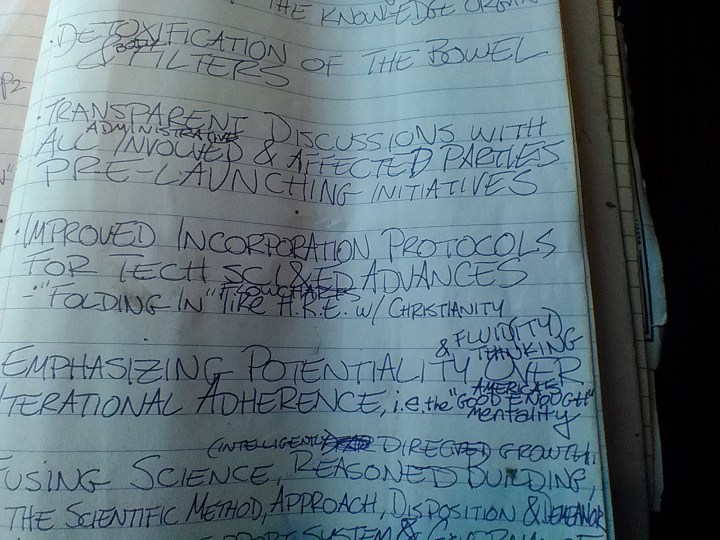 THE KNOWLEDGE ORGAN
P2
• DETOXIFICATION OF THE BOWEL
& BODY FILTERS
• TRANSPARENT DISCUSSIONS WITH
ADMINISTRATIVE
ALL INVOLVED & AFFECTED PARTIES
PRE-LAUNCHING INITIATIVES
• IMPROVED INCORPORATION PROTOCOLS
FOR TECH SCI & ED ADVANCES
- "FOLDING IN" like H.R.E. w/ CHRISTIANITY
& FLUID(ITY)
THINKING
EMPHASIZING POTENTIALITY OVER
AMERICA'S
ITERATIONAL ADHERENCE, i.e. the "GOOD ENOUGH"
mentality
(INTELLIGENTLY) DIRECTED GROWTH,
FUSING SCIENCE, REASONED BUILDING,
THE SCIENTIFIC METHOD, APPROACH, DISPOSITION & DEMEANOR
SYSTEM &